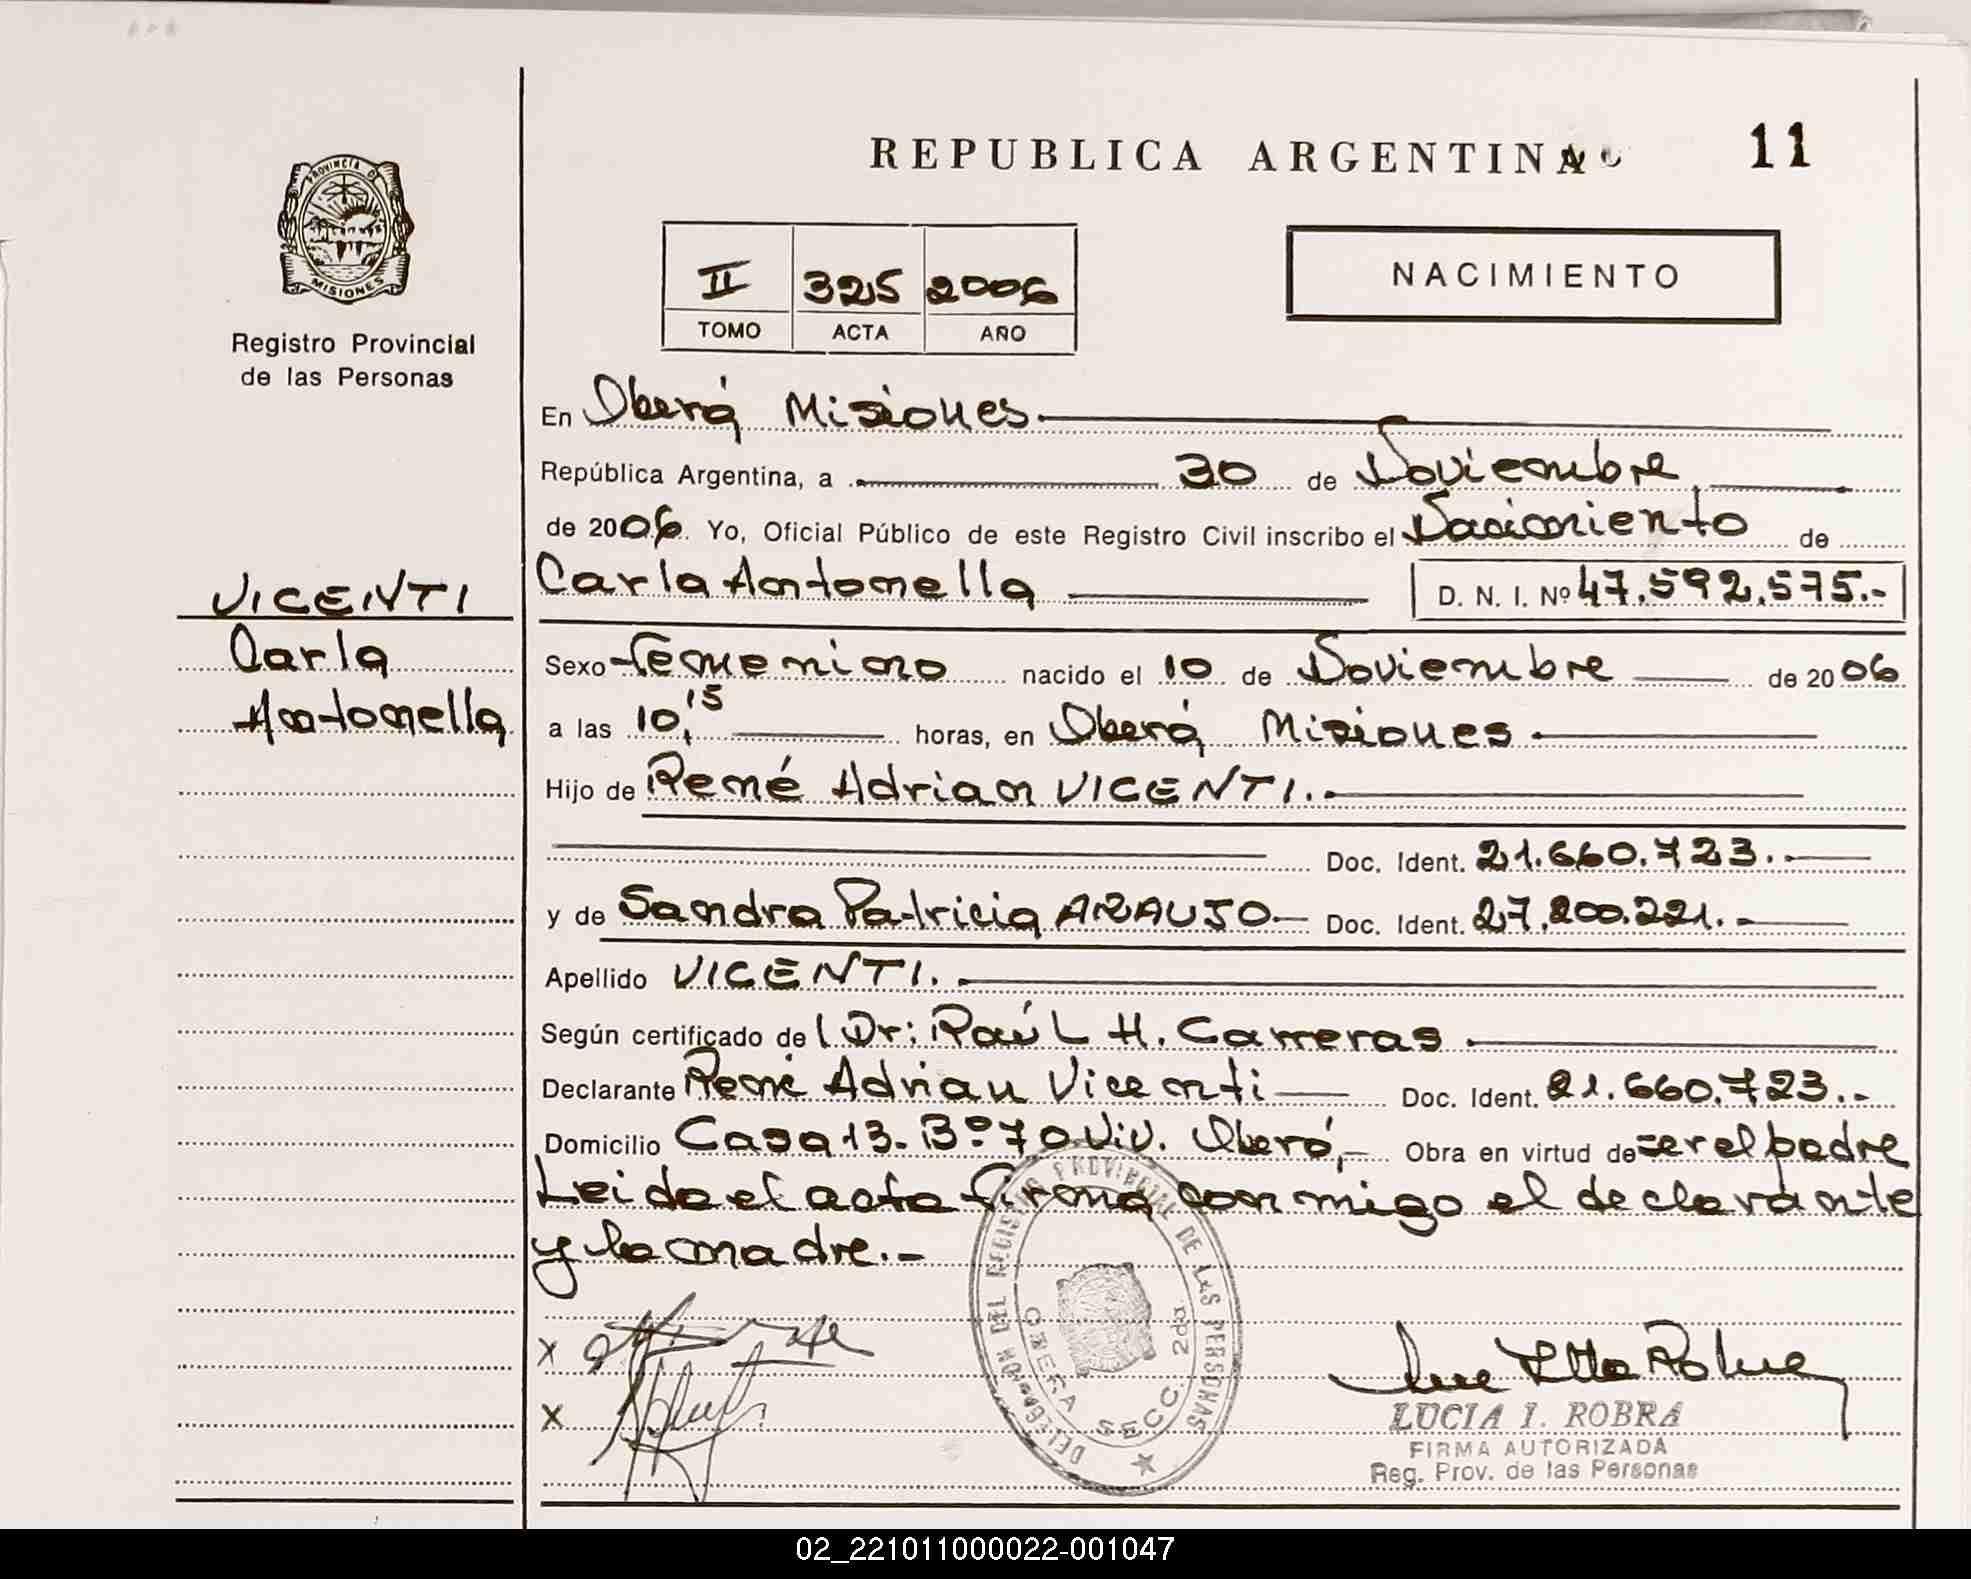 REPUBLICA ARGENTINA
11
PROVINCIA DE
MISIONES
Registro Provincial
de las Personas
II 325 2006
TOMO ACTA AÑO
NACIMIENTO
En Oberá Misiones
República Argentina, a 30 de Noviembre
de 2006. Yo, Oficial Público de este Registro Civil inscribo el Nacimiento de
Carla Antonella D. N. I. Nº 47.592.575.-
VICENTI
Carla
Antonella
Sexo femenino nacido el 10 de Noviembre de 2006
a las 10,15 horas, en Oberá Misiones
Hijo de René Adrian VICENTI.
Doc. Ident. 21.660.723.
y de Sandra Patricia ARAUJO Doc. Ident. 27.200.221.-
Apellido VICENTI.
Según certificado del Dr: Raúl H. Carreras
Declarante René Adrian Vicenti Doc. Ident. 21.660.723.-
Domicilio Casa 13- Bº 70 Viv. Oberá,- Obra en virtud de ser el padre
Leida el acta firma conmigo el declarante
y la madre.-
DELEGACION DEL REGISTRO PROVINCIAL DE LAS PERSONAS
OBERA SECC. 2da.
X
X
LUCIA I. ROBRA
FIRMA AUTORIZADA
Reg. Prov. de las Personas
02_221011000022-001047